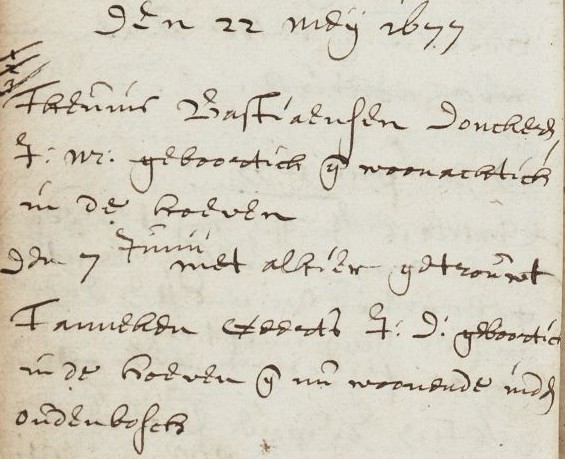 Den 22 meij 1677
Theunis Bastiaensen Donckers
J: M: geboortich en woonachtich
in de hoeven
den 7 Junij met alhier getrouwt
Tanneken Geerts J: D: geboortich
in de hoeven en nu woonende inde
oudenbosch